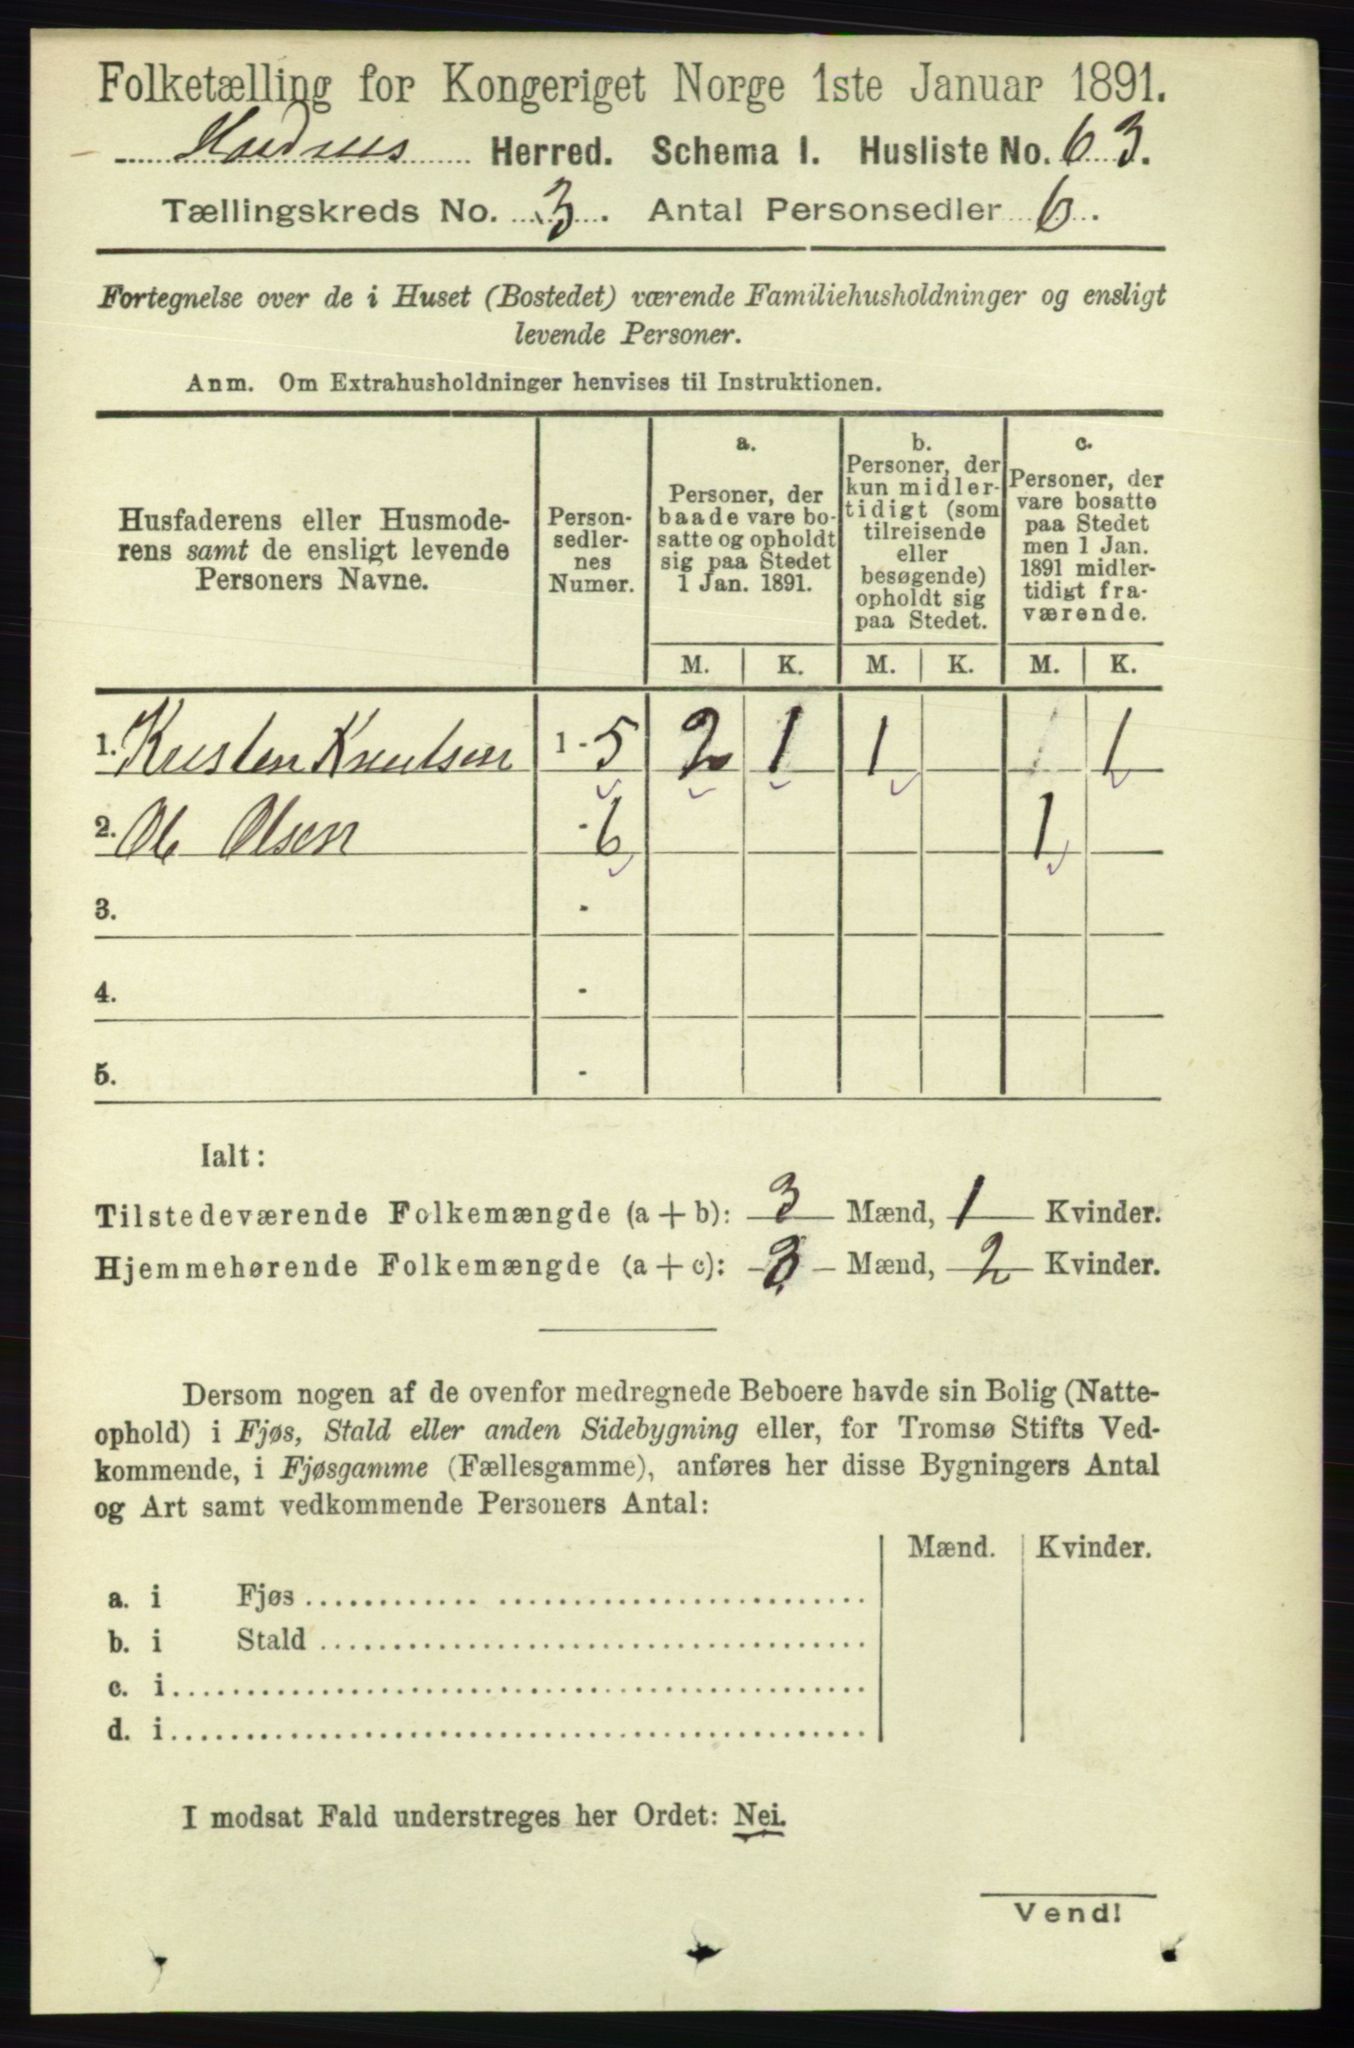 Folketælling for Kongeriget Norge 1ste Januar 1891.
Herred. Schema I. Husliste No. 63.
Tællingskreds No. 3. Antal Personsedler 6.
Fortegnelse over de i Huset (Bostedet) værende Familiehusholdninger og ensligt
levende Personer.
Anm. Om Extrahusholdninger henvises til Instruktionen.
Husfaderens eller Husmode-
rens samt de ensligt levende
Personers Navne.
Person-
sedler-
nes
Numer.
a.
Personer, der
baade vare bo-
satte og opholdt
sig paa Stedet
1 Jan. 1891.
b.
Personer, der
kun midler-
tidigt (som
tilreisende
eller
besøgende)
opholdt sig
paa Stedet.
c.
Personer, der
vare bosatte
paa Stedet
men 1 Jan.
1891 midler-
tidigt fra-
værende.
M. K. M. K. M. K.
1. Kristen Knutsen 1 - 5 2 1 1 1
2. Ole Olsen - 6 1
3. -
4. -
5. -
Ialt:
Tilstedeværende Folkemængde (a + b): 3 Mænd, 1 Kvinder.
Hjemmehørende Folkemængde (a + c): 3 Mænd, 2 Kvinder.
Dersom nogen af de ovenfor medregnede Beboere havde sin Bolig (Natte-
ophold) i Fjøs, Stald eller anden Sidebygning eller, for Tromsø Stifts Ved-
kommende, i Fjøsgamme (Fællesgamme), anføres her disse Bygningers Antal
og Art samt vedkommende Personers Antal:
Mænd. Kvinder.
a. i Fjøs
b. i Stald
c. i
d. i
I modsat Fald understreges her Ordet: Nei.
Vend!